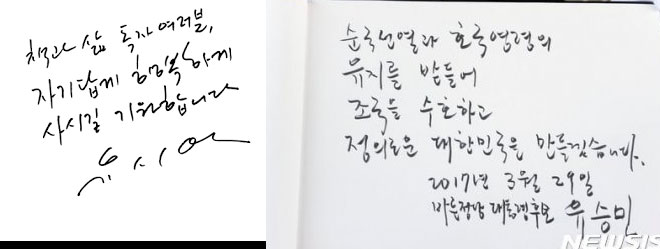 책과 삶 독자 여러분,
자기답게 행복하게
사시길 기원합니다
유시민
순국선열과 호국영령의
유지를 받들어
조국을 수호하고
정의로운 대한민국을 만들겠습니다.
2017년 3월 29일
바른정당 대통령후보 유승민
NEWSIS